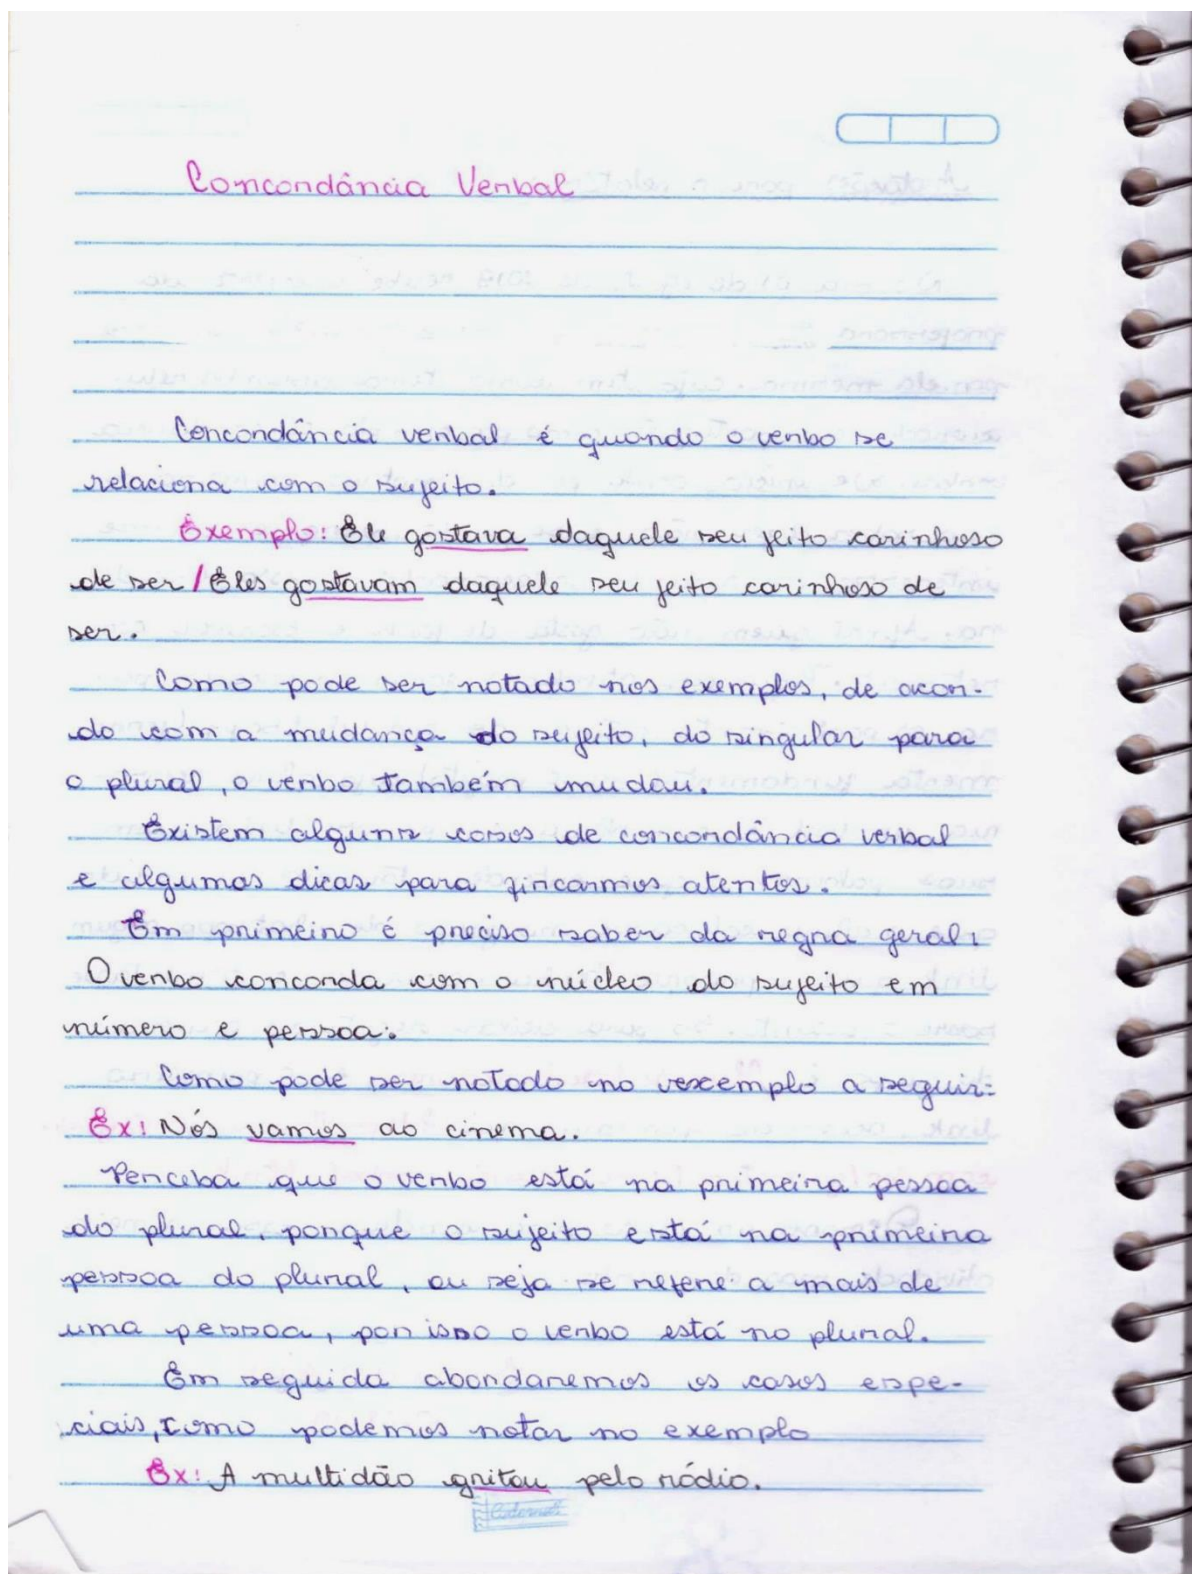 Concondância Verbal
Concondância verbal é quando o verbo se
relaciona com o sujeito.
Exemplo: Ele gostava daquele seu jeito carinhoso
de ser / Eles gostavam daquele seu jeito carinhoso de
ser.
Como pode ser notado nos exemplos, de acor-
do com a mudança do sujeito, do singular para
o plural, o verbo também mudou.
Existem alguns casos de concordância verbal
e algumas dicas para ficarmos atentos.
Em primeiro é preciso saber da regra geral:
O verbo concorda com o núcleo do sujeito em
número e pessoa:
Como pode ser notado no exemplo a seguir:
Ex: Nós vamos ao cinema.
Perceba que o verbo está na primeira pessoa
do plural, porque o sujeito está na primeira
pessoa do plural, ou seja se refere a mais de
uma pessoa, por isso o verbo está no plural.
Em seguida abordaremos os casos espe-
ciais, como podemos notar no exemplo
Ex: A multidão gritou pelo rádio.